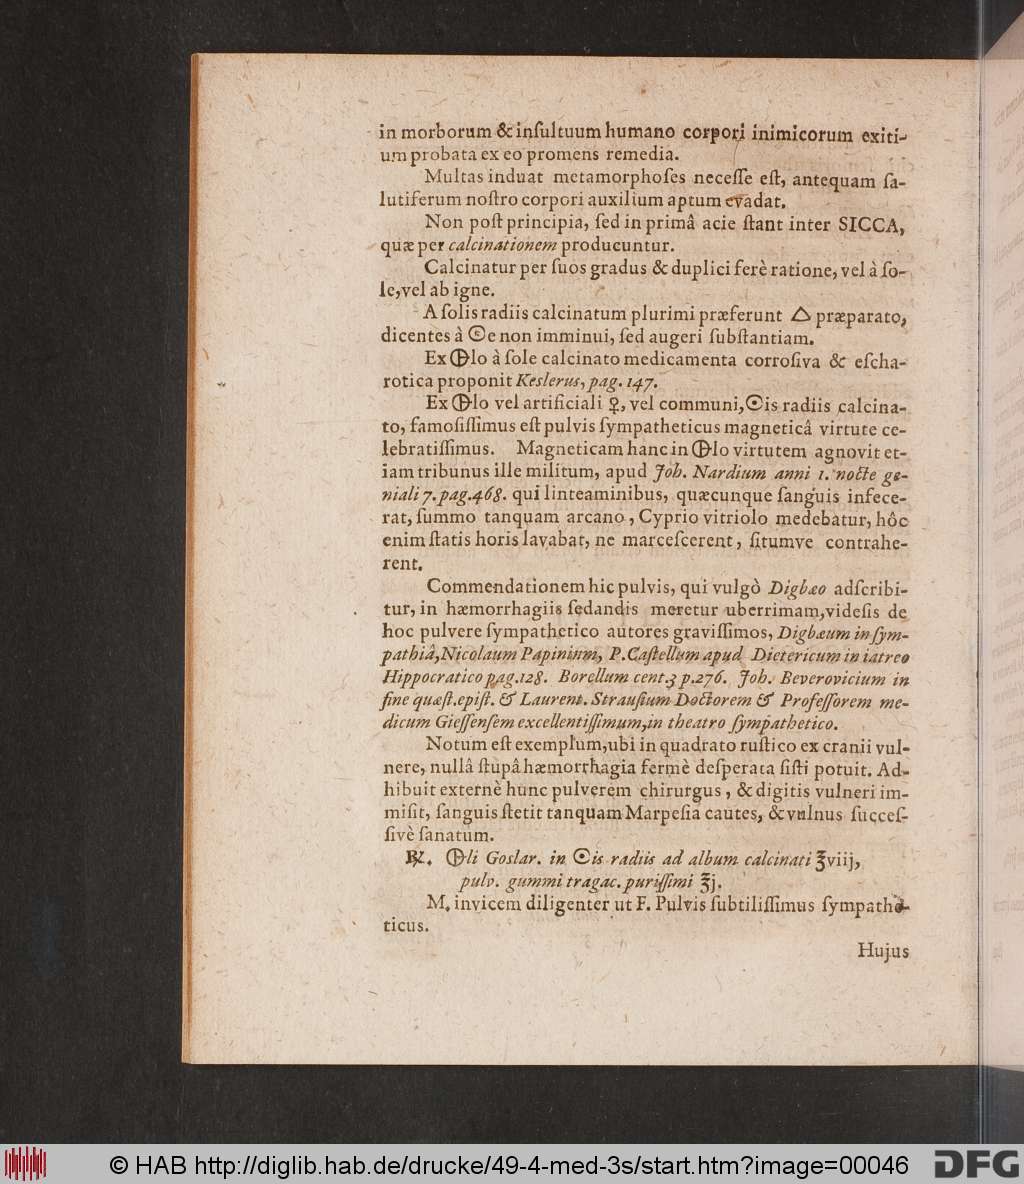 in morborum & inſultuum humano corpori inimicorum exiti-
um probata ex eo promens remedia.
Multas induat metamorphoſes neceſſe eſt, antequam ſa-
lutiferum noſtro corpori auxilium aptum evadat.
Non poſt principia, ſed in primâ acie ſtant inter SICCA,
quæ per calcinationem producuntur.
Calcinatur per ſuos gradus & duplici ferè ratione, vel à ſo-
le, vel ab igne.
A ſolis radiis calcinatum plurimi præferunt 🜂 præparato,
dicentes à ☉e non imminui, ſed augeri ſubſtantiam.
Ex 🜖lo à ſole calcinato medicamenta corroſiva & eſcha-
rotica proponit Keslerus, pag. 147.
Ex 🜖lo vel artificiali ♀, vel communi, ☉is radiis calcina-
to, famoſiſſimus eſt pulvis ſympatheticus magneticâ virtute ce-
lebratiſſimus. Magneticam hanc in 🜖lo virtutem agnovit et-
iam tribunus ille militum, apud Joh. Nardium anni 1. nocte ge-
niali 7. pag. 468. qui linteaminibus, quæcunque ſanguis infece-
rat, ſummo tanquam arcano, Cyprio vitriolo medebatur, hôc
enim ſtatis horis lavabat, ne marceſcerent, ſitumve contrahe-
rent.
Commendationem hic pulvis, qui vulgò Digbæo adſcribi-
tur, in hæmorrhagiis ſedandis meretur uberrimam, videſis de
hoc pulvere ſympathetico autores graviſſimos, Digbæum in ſym-
pathiâ, Nicolaum Papinium, P. Caſtellum apud Dietericum in iatreo
Hippocratico pag. 128. Borellum cent. 3 p. 276. Joh. Beverovicium in
fine quæſt. epiſt. & Laurent. Strauſium Doctorem & Profeſſorem me-
dicum Gieſſenſem excellentiſſimum, in theatro ſympathetico.
Notum eſt exemplum, ubi in quadrato ruſtico ex cranii vul-
nere, nullâ ſtupâ hæmorrhagia fermè deſperata ſiſti potuit. Ad-
hibuit externè hunc pulverem chirurgus, & digitis vulneri im-
miſit, ſanguis ſtetit tanquam Marpeſia cautes, & vulnus ſucceſ-
ſivè ſanatum.
℞. 🜖li Goslar. in ☉is radiis ad album calcinati ℥viij,
pulv. gummi tragac. puriſſimi ℥j.
M. invicem diligenter ut F. Pulvis ſubtiliſſimus ſympathe-
ticus.
Hujus
© HAB http://diglib.hab.de/drucke/49-4-med-3s/start.htm?image=00046
DFG